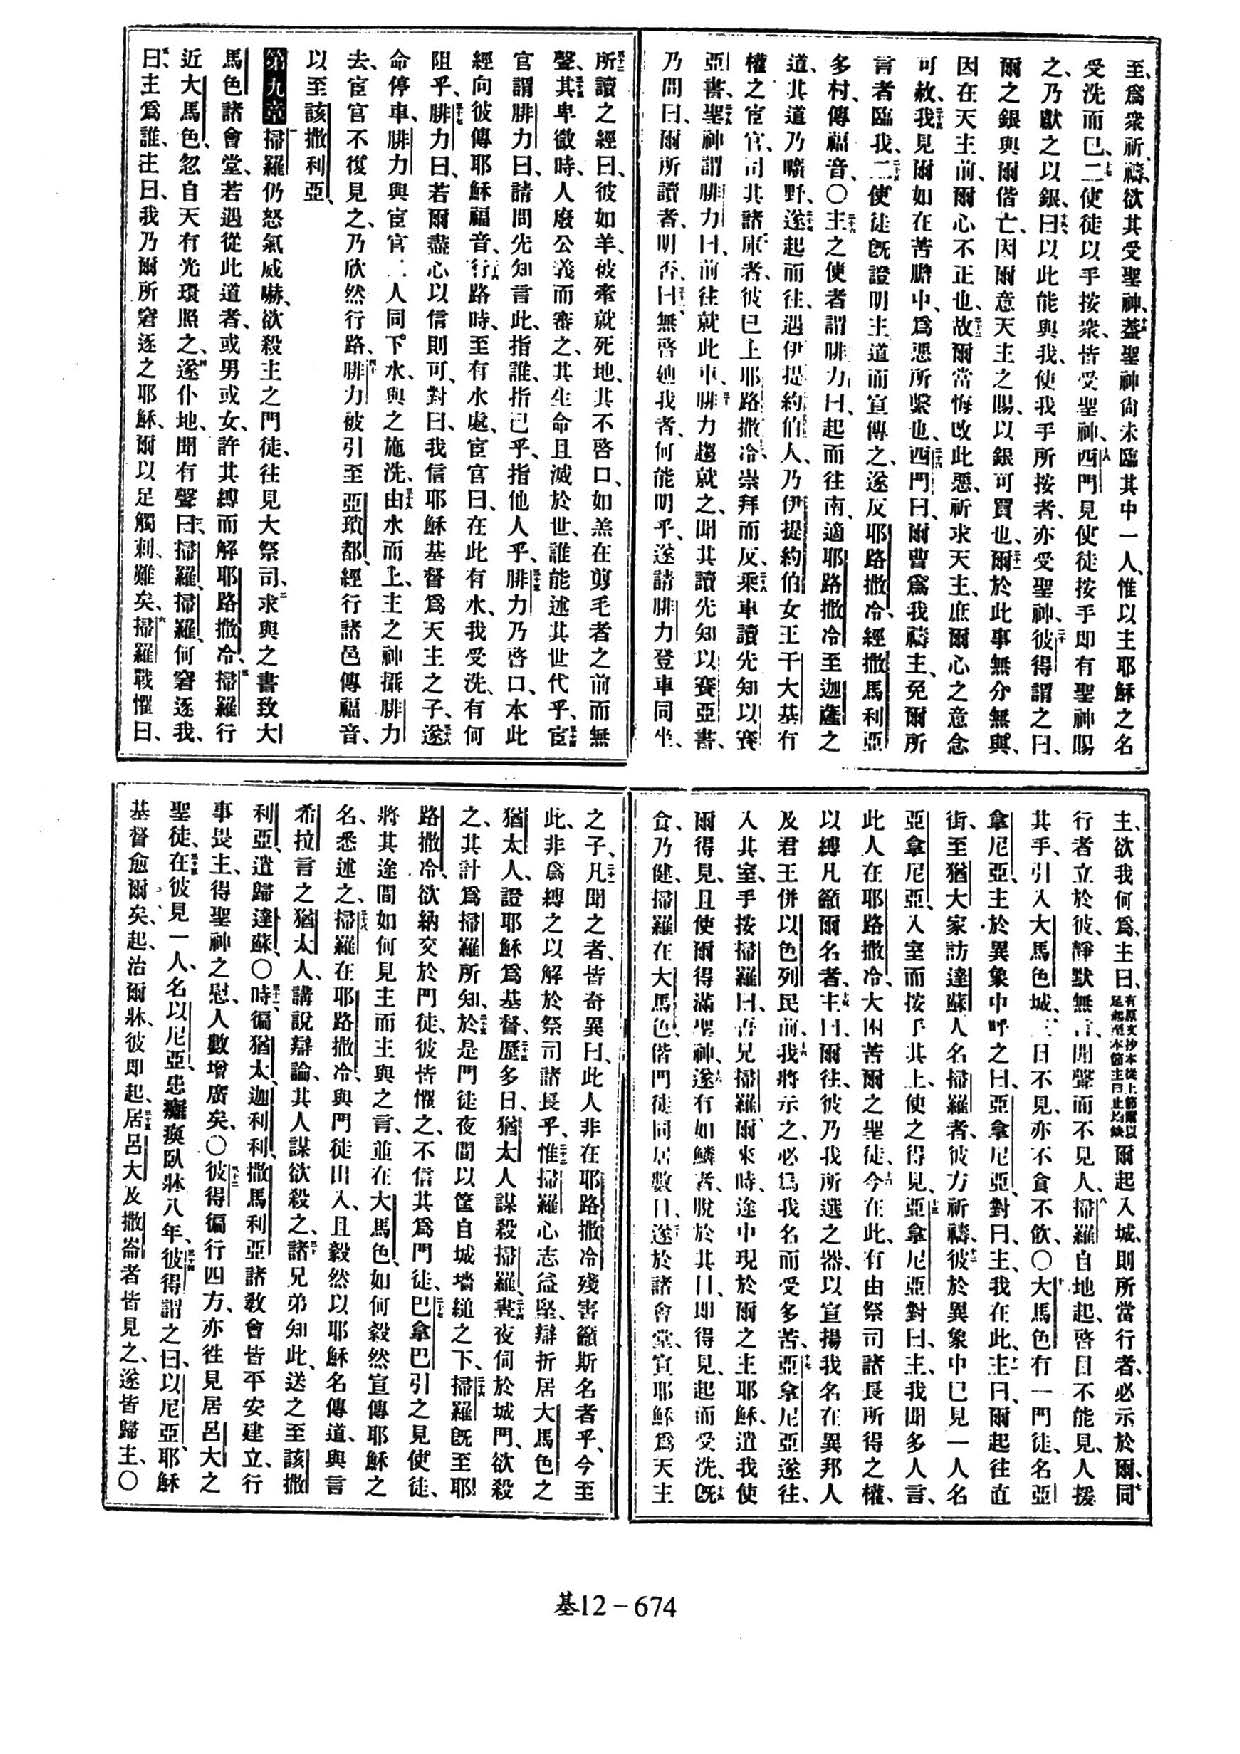 至、爲衆祈禱、欲其受聖神、蓋聖神尙未臨其中一人、惟以主耶穌之名
受洗而已、二使徒以手按衆、皆受聖神、西門見使徒按手即有聖神賜
之、乃獻之以銀、曰、以此能與我、使我手所按者、亦受聖神、彼得謂之曰、
爾之銀與爾偕亡、因爾意天主之賜、以銀可買也、爾於此事無分無與、
因在天主前、爾心不正也、故爾當悔改此惡、祈求天主、庶爾心之意念
可赦、我見爾如在苦膽中、爲惡所繫也、西門曰、爾曹爲我禱主、免爾所
言者臨我、二使徒既證明主道而宣傳之、遂反耶路撒冷、經撒馬利亞
多村、傳福音、〇主之使者謂腓力曰、起而往南、適耶路撒冷至迦薩之
道、其道乃曠野、遂起而往、遇伊提約伯人、乃伊提約伯女王干大基有
權之宦官、司其諸庫者、彼已上耶路撒冷崇拜而反、乘車讀先知以賽
亞書、聖神謂腓力曰、前往就此車、腓力趨就之、聞其讀先知以賽亞書、
乃問曰、爾所讀者、明否、曰、無啓廸我者、何能明乎、遂請腓力登車同坐、
所讀之經曰、彼如羊、被牽就死地、其不啓口、如羔在剪毛者之前而無
聲、其卑微時、人廢公義而審之、其生命且滅於世、誰能述其世代乎、宦
官謂腓力曰、請問先知言此、指誰、指己乎、指他人乎、腓力乃啓口、本此
經向彼傳耶穌福音、行路時、至有水處、宦官曰、在此有水、我受洗、有何
阻乎、腓力曰、若爾盡心以信則可、對曰、我信耶穌基督爲天主之子、遂
命停車、腓力與宦官二人同下水、與之施洗、由水而上、主之神攝腓力
去、宦官不復見之、乃欣然行路、腓力被引至亞瑣都、經行諸邑傳福音、
以至該撒利亞、
第九章 掃羅仍怒氣威嚇、欲殺主之門徒、往見大祭司、求與之書致大
馬色諸會堂、若遇從此道者、或男或女、許其縛而解耶路撒冷、掃羅行
近大馬色、忽自天有光環照之、遂仆地、聞有聲曰、掃羅、掃羅、何窘逐我、
曰、主爲誰、主曰、我乃爾所窘逐之耶穌、爾以足觸刺、難矣、掃羅戰懼曰、
主、欲我何爲、主曰、爾起入城、則所當行者、必示於爾、同
行者立於彼、靜默無言、聞聲而不見人、掃羅自地起、啓目不能見、人援
其手、引入大馬色城、三日不見、亦不食不飲、〇大馬色有一門徒、名亞
拿尼亞、主於異象中呼之曰、亞拿尼亞、對曰、主、我在此、主曰、爾起往直
街、至猶大家、訪達蘇人名掃羅者、彼方祈禱、彼於異象中已見一人名
亞拿尼亞、入室而按手其上、使之得見、亞拿尼亞對曰、主、我聞多人言、
此人在耶路撒冷、大困苦爾之聖徒、今在此、有由祭司諸長所得之權、
以縛凡籲爾名者、主曰、爾往、彼乃我所選之器、以宣揚我名在異邦人
及君王併以色列民前、我將示之、必爲我名而受多苦、亞拿尼亞遂往、
入其室、手按掃羅曰、吾兄掃羅、爾來時、途中現於爾之主耶穌、遣我使
爾得見、且使爾得滿聖神、遂有如鱗者、脫於其目、即得見、起而受洗、既
食乃健、掃羅在大馬色、偕門徒同居數日、遂於諸會堂、宣耶穌爲天主
之子、凡聞之者、皆奇異曰、此人非在耶路撒冷殘害籲斯名者乎、今至
此、非爲縛之以解於祭司諸長乎、惟掃羅心志益堅、辯折居大馬色之
猶太人、證耶穌爲基督、歷多日、猶太人謀殺掃羅、晝夜伺於城門、欲殺
之、其計爲掃羅所知、於是門徒夜間以筐自城墻縋之下、掃羅既至耶
路撒冷、欲納交於門徒、彼皆懼之、不信其爲門徒、巴拿巴引之見使徒、
將其途間如何見主而主與之言、並在大馬色、如何毅然宣傳耶穌之
名、悉述之、掃羅在耶路撒冷、與門徒出入、且毅然以耶穌名傳道、與言
希拉言之猶太人、講說辯論、其人謀欲殺之、諸兄弟知此、送之至該撒
利亞、遣歸達蘇、〇時徧猶太迦利利撒馬利亞諸敎會皆平安建立、行
事畏主、得聖神之慰、人數增廣矣、〇彼得徧行四方、亦徃見居呂大之
聖徒、在彼見一人、名以尼亞、患癱瘓臥牀八年、彼得謂之曰、以尼亞、耶穌
基督愈爾矣、起治爾牀、彼即起、居呂大及撒崙者皆見之、遂皆歸主、〇
基12－674